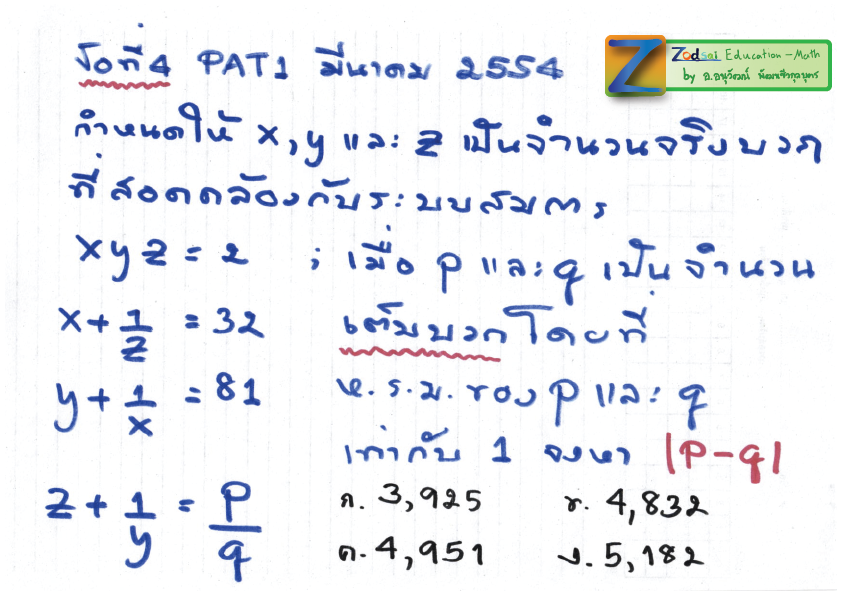 ข้อที่4 PAT1 มีนาคม 2554
Zodsai Education - Math
by อ.อนุวัฒน์
กำหนดให้ x,y และ z เป็นจำนวนจริงบวก
ที่สอดคล้องกับระบบสมการ
xyz = 2 ; เมื่อ p และ q เป็นจำนวน
x + 1/z = 32 เต็มบวก โดยที่
y + 1/x = 81 ห.ร.ม. ของ p และ q
เท่ากับ 1 จงหา |P-q|
z + 1/y = p/q ก. 3,925 ข. 4,832
ค. 4,951 ง. 5,182